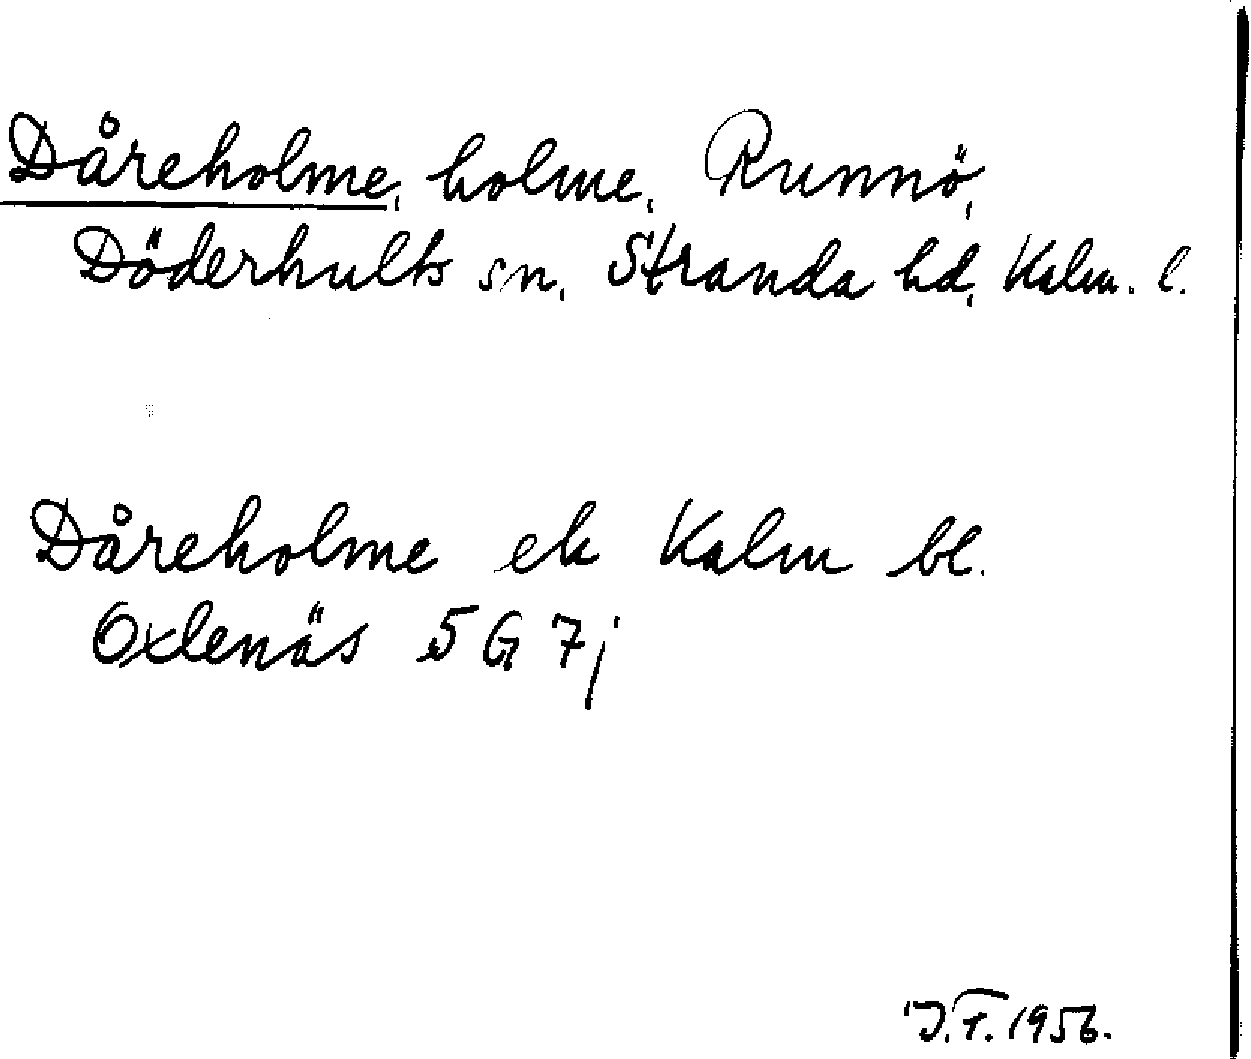 Dåreholme, holme, Runnö,
Döderhults sn, Stranda hd, Kalm. l.
Dåreholme ek Kalm bl.
Oxlenäs 5 G 7 j
J.F. 1956.